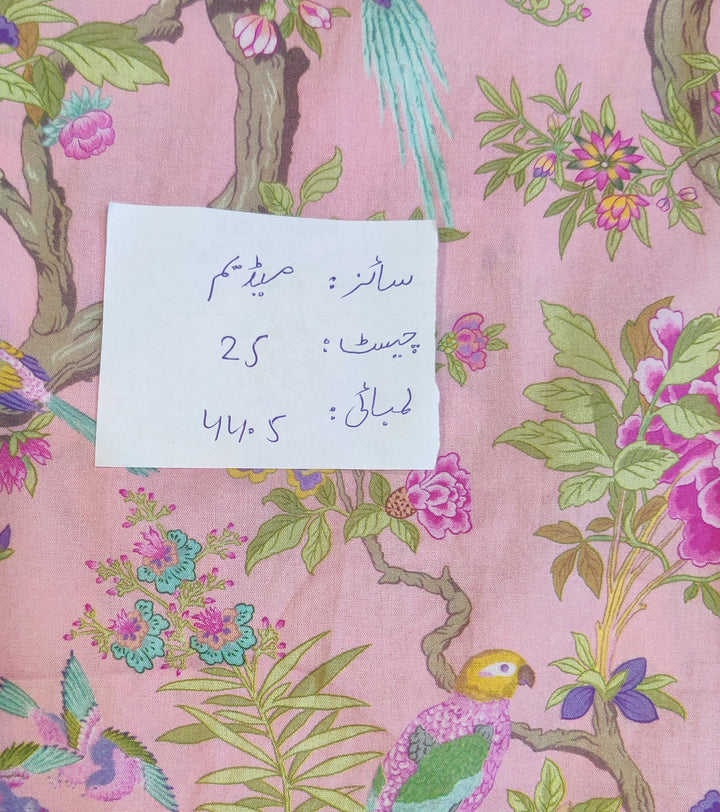 سائز: میڈیم
چیسٹ: 25
لمبائی: 44.5